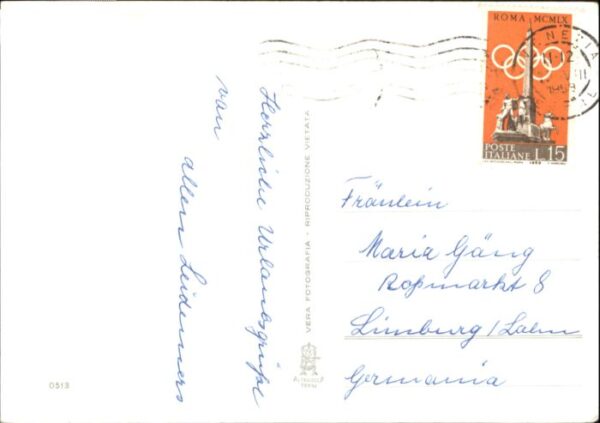 Herzliche Urlaubsgrüße
von
allen Leidenners
VERA FOTOGRAFIA - RIPRODUZIONE VIETATA
0513
ROMA MCMLX
POSTE
ITALIANE L.15
VENEZIA
1959
Fräulein
Maria Gäng
Roßmarkt 8
Limburg/Lahn
Germania